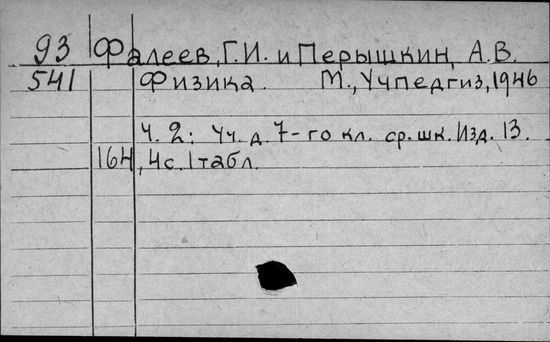 93 Фалеев, Г.И. и Перышкин, А.В.
541 Физика. М., Учпедгиз, 1946
Ч. 2: Уч. д. 7-го кл. ср. шк. Изд. 13.
164, 4с. 1 табл.